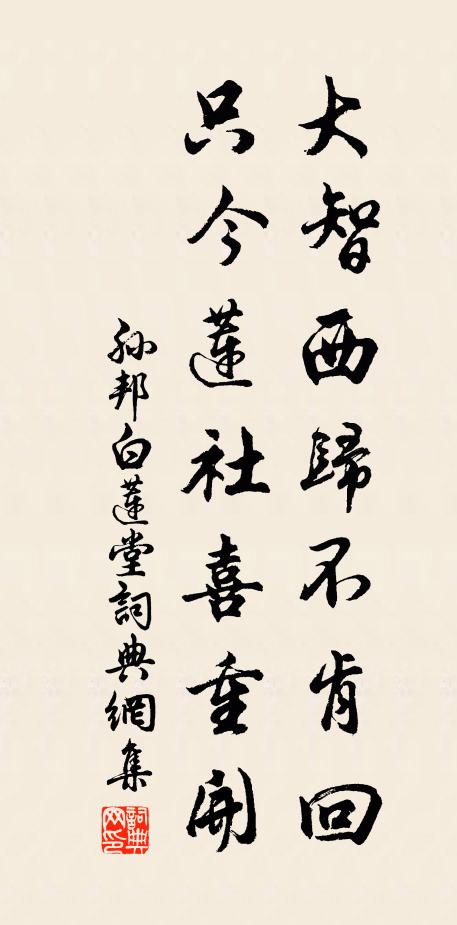 大智西歸不肯回
只今蓮社喜重開
孫邦白蓮堂詞典網集
詞典網印